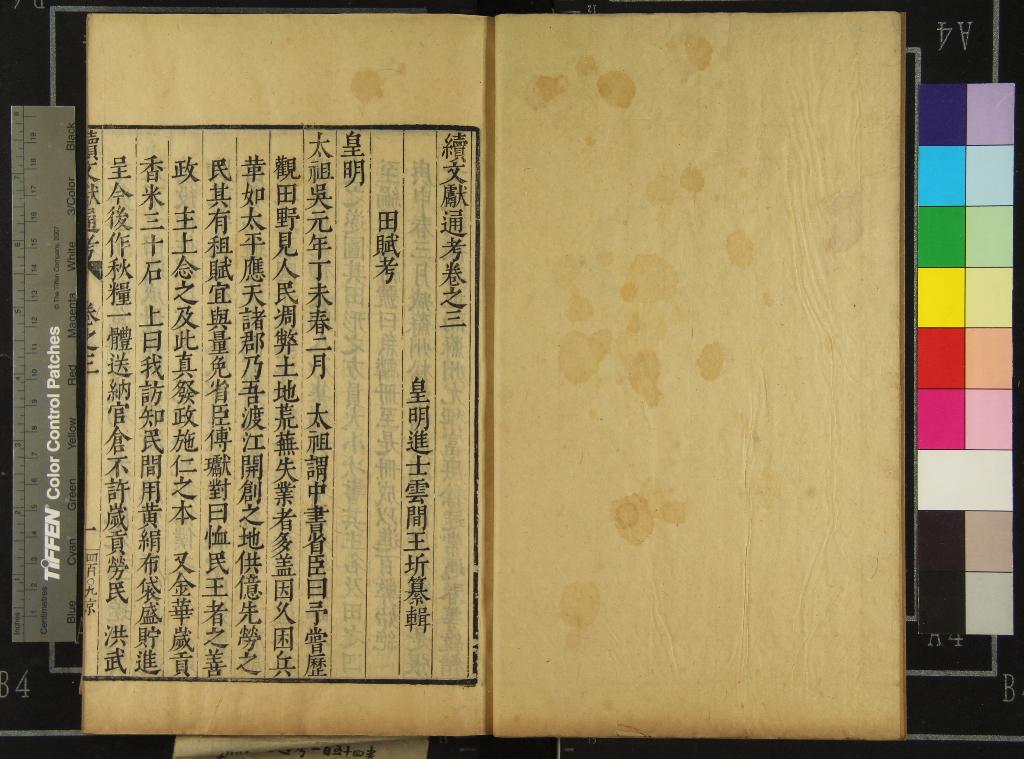 續文獻通考卷之三
皇明進士雲間王圻纂輯
田賦考
皇明
太祖吳元年丁未春二月　太祖謂中書省臣曰予嘗歷
觀田野見人民凋弊土地荒蕪失業者多盖因久困兵
革如太平應天諸郡乃吾渡江開創之地供億先勞之
民其有租賦宜與量免省臣傅瓛對曰恤民王者之善
政　主上念之及此真發政施仁之本　又金華歲貢
香米三十石　上曰我訪知民間用黄絹布袋盛貯進
呈今後作秋糧一體送納官倉不許歲貢勞民　洪武
續文獻通考　卷之三　一
TIFFEN Color Control Patches
© The Tiffen Company, 2007
Blue Cyan Green Yellow Red Magenta White 3/Color Black
Inches
Centimetres
A4
A4
B4